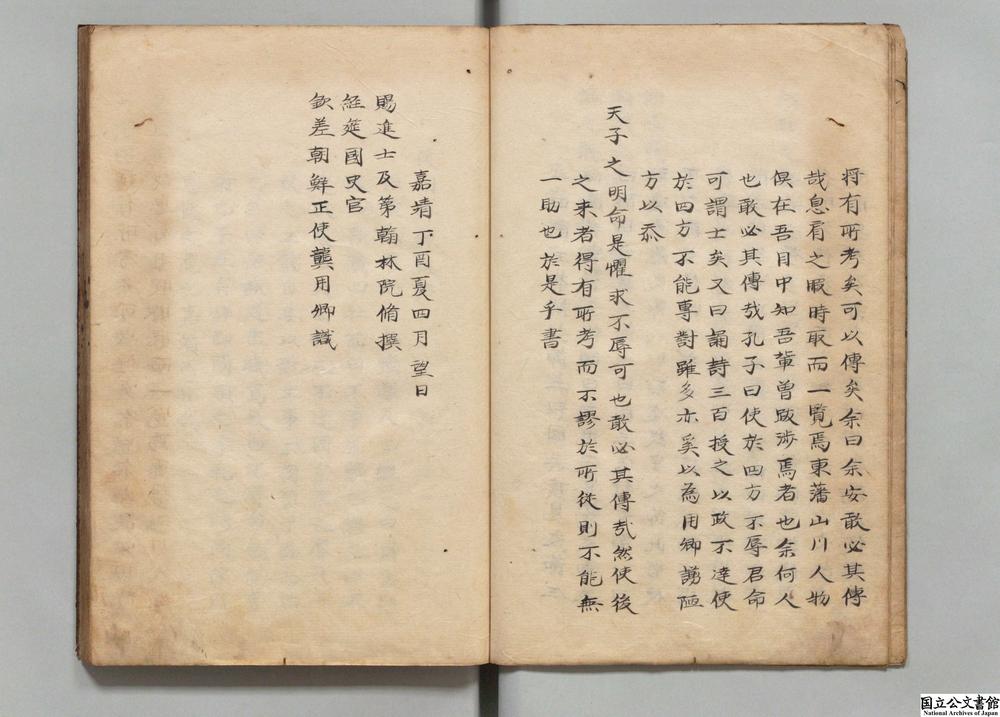 将有所考矣可以傳矣余曰余安敢必其傳
哉息肩之暇時取而一覧焉東藩山川人物
俱在吾目中知吾軰曽跋涉焉者也余何人
也敢必其傳哉孔子曰使於四方不辱君命
可謂士矣又曰誦詩三百授之以政不達使
於四方不能專對雖多亦奚以為用卿謭陋
方以忝
天子之明命是懼求不辱可也敢必其傳哉然使後
之来者得有所考而不謬於所従則不能無
一助也於是乎書
嘉靖丁酉夏四月望日
賜進士及第翰林院脩撰
經筵國史官
欽差朝鮮正使龔用卿識
国立公文書館
National Archives of Japan